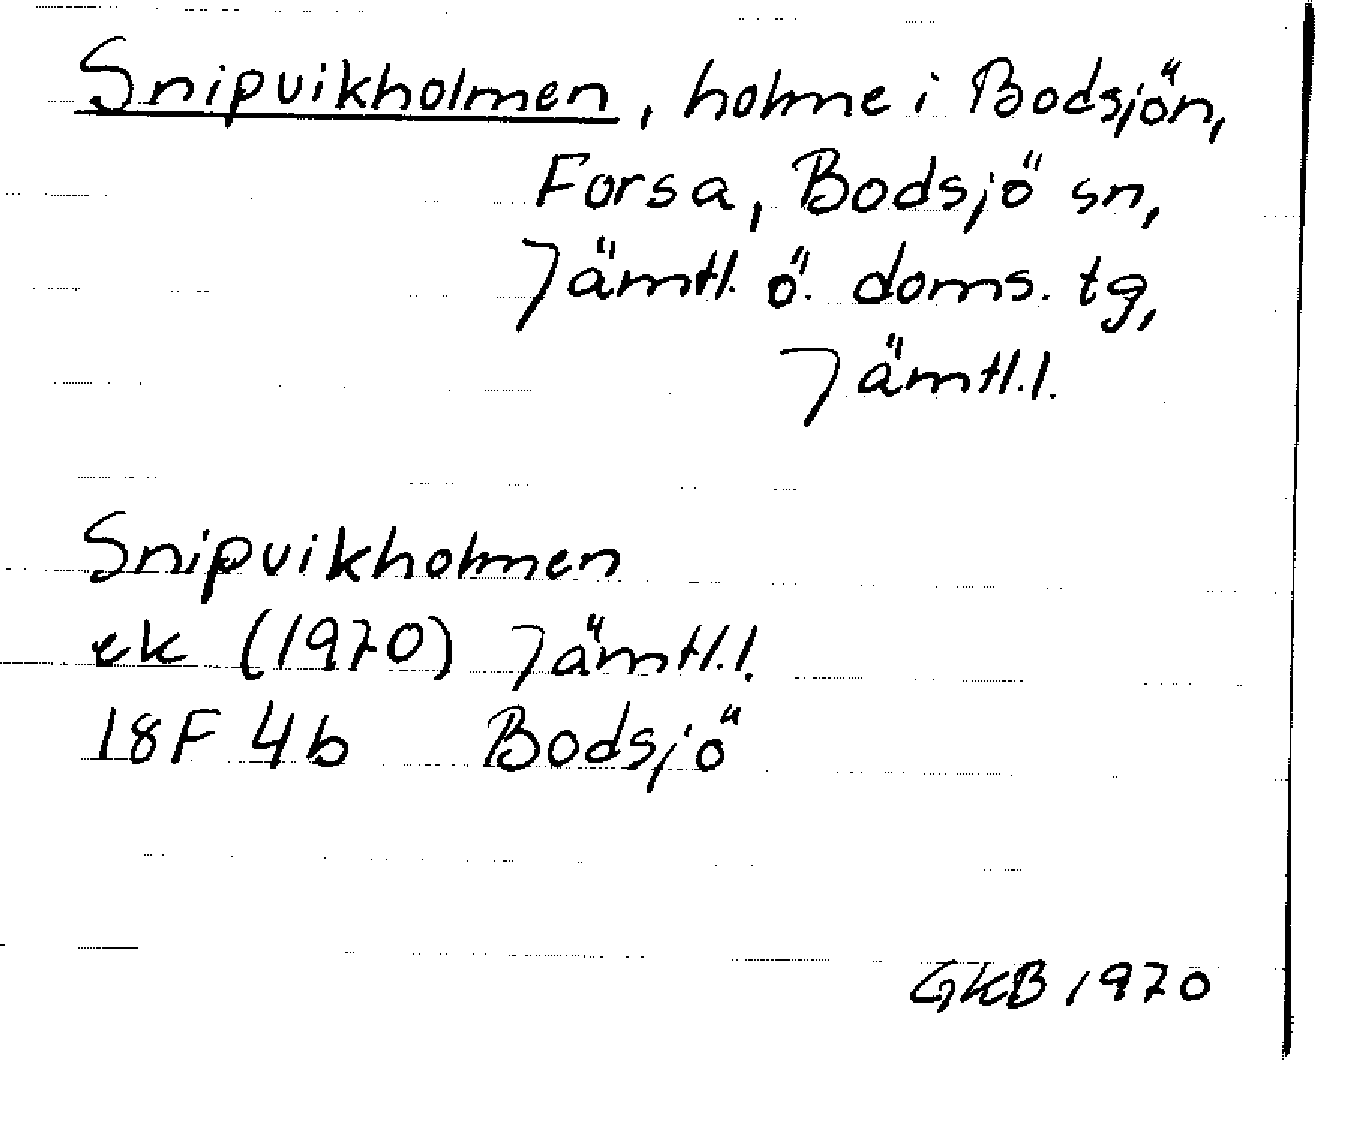 Snipvikholmen, holme i Bodsjön,
Forsa, Bodsjö sn,
Jämtl. ö. doms. tg,
Jämtl.l.
Snipvikholmen
ek (1970) Jämtl.l.
18F 4b Bodsjö
GKB 1970